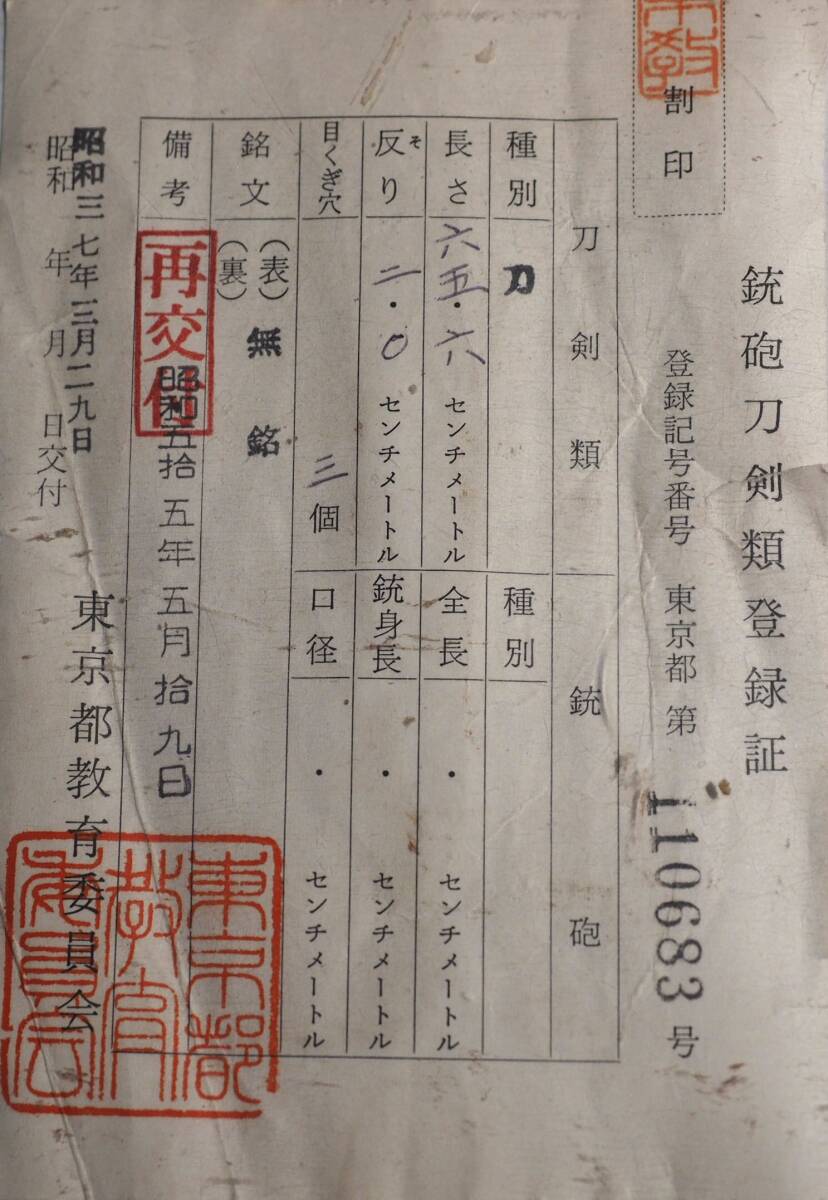 銃砲刀剣類登録証
割印
登録記号番号 東京都 第 110683 号
刀剣類 銃砲
種別 刀 種別
長さ 六五・六 センチメートル 全長 ・ センチメートル
反り そ 二・0 センチメートル 銃身長 ・ センチメートル
目くぎ穴 三個 口径 ・ センチメートル
銘文 (表) 無銘
(裏)
備考 再交付 昭和五拾五年五月拾九日
昭和三七年三月二九日
昭和 年 月 日交付
東京都教育委員会
東京都教育委員会